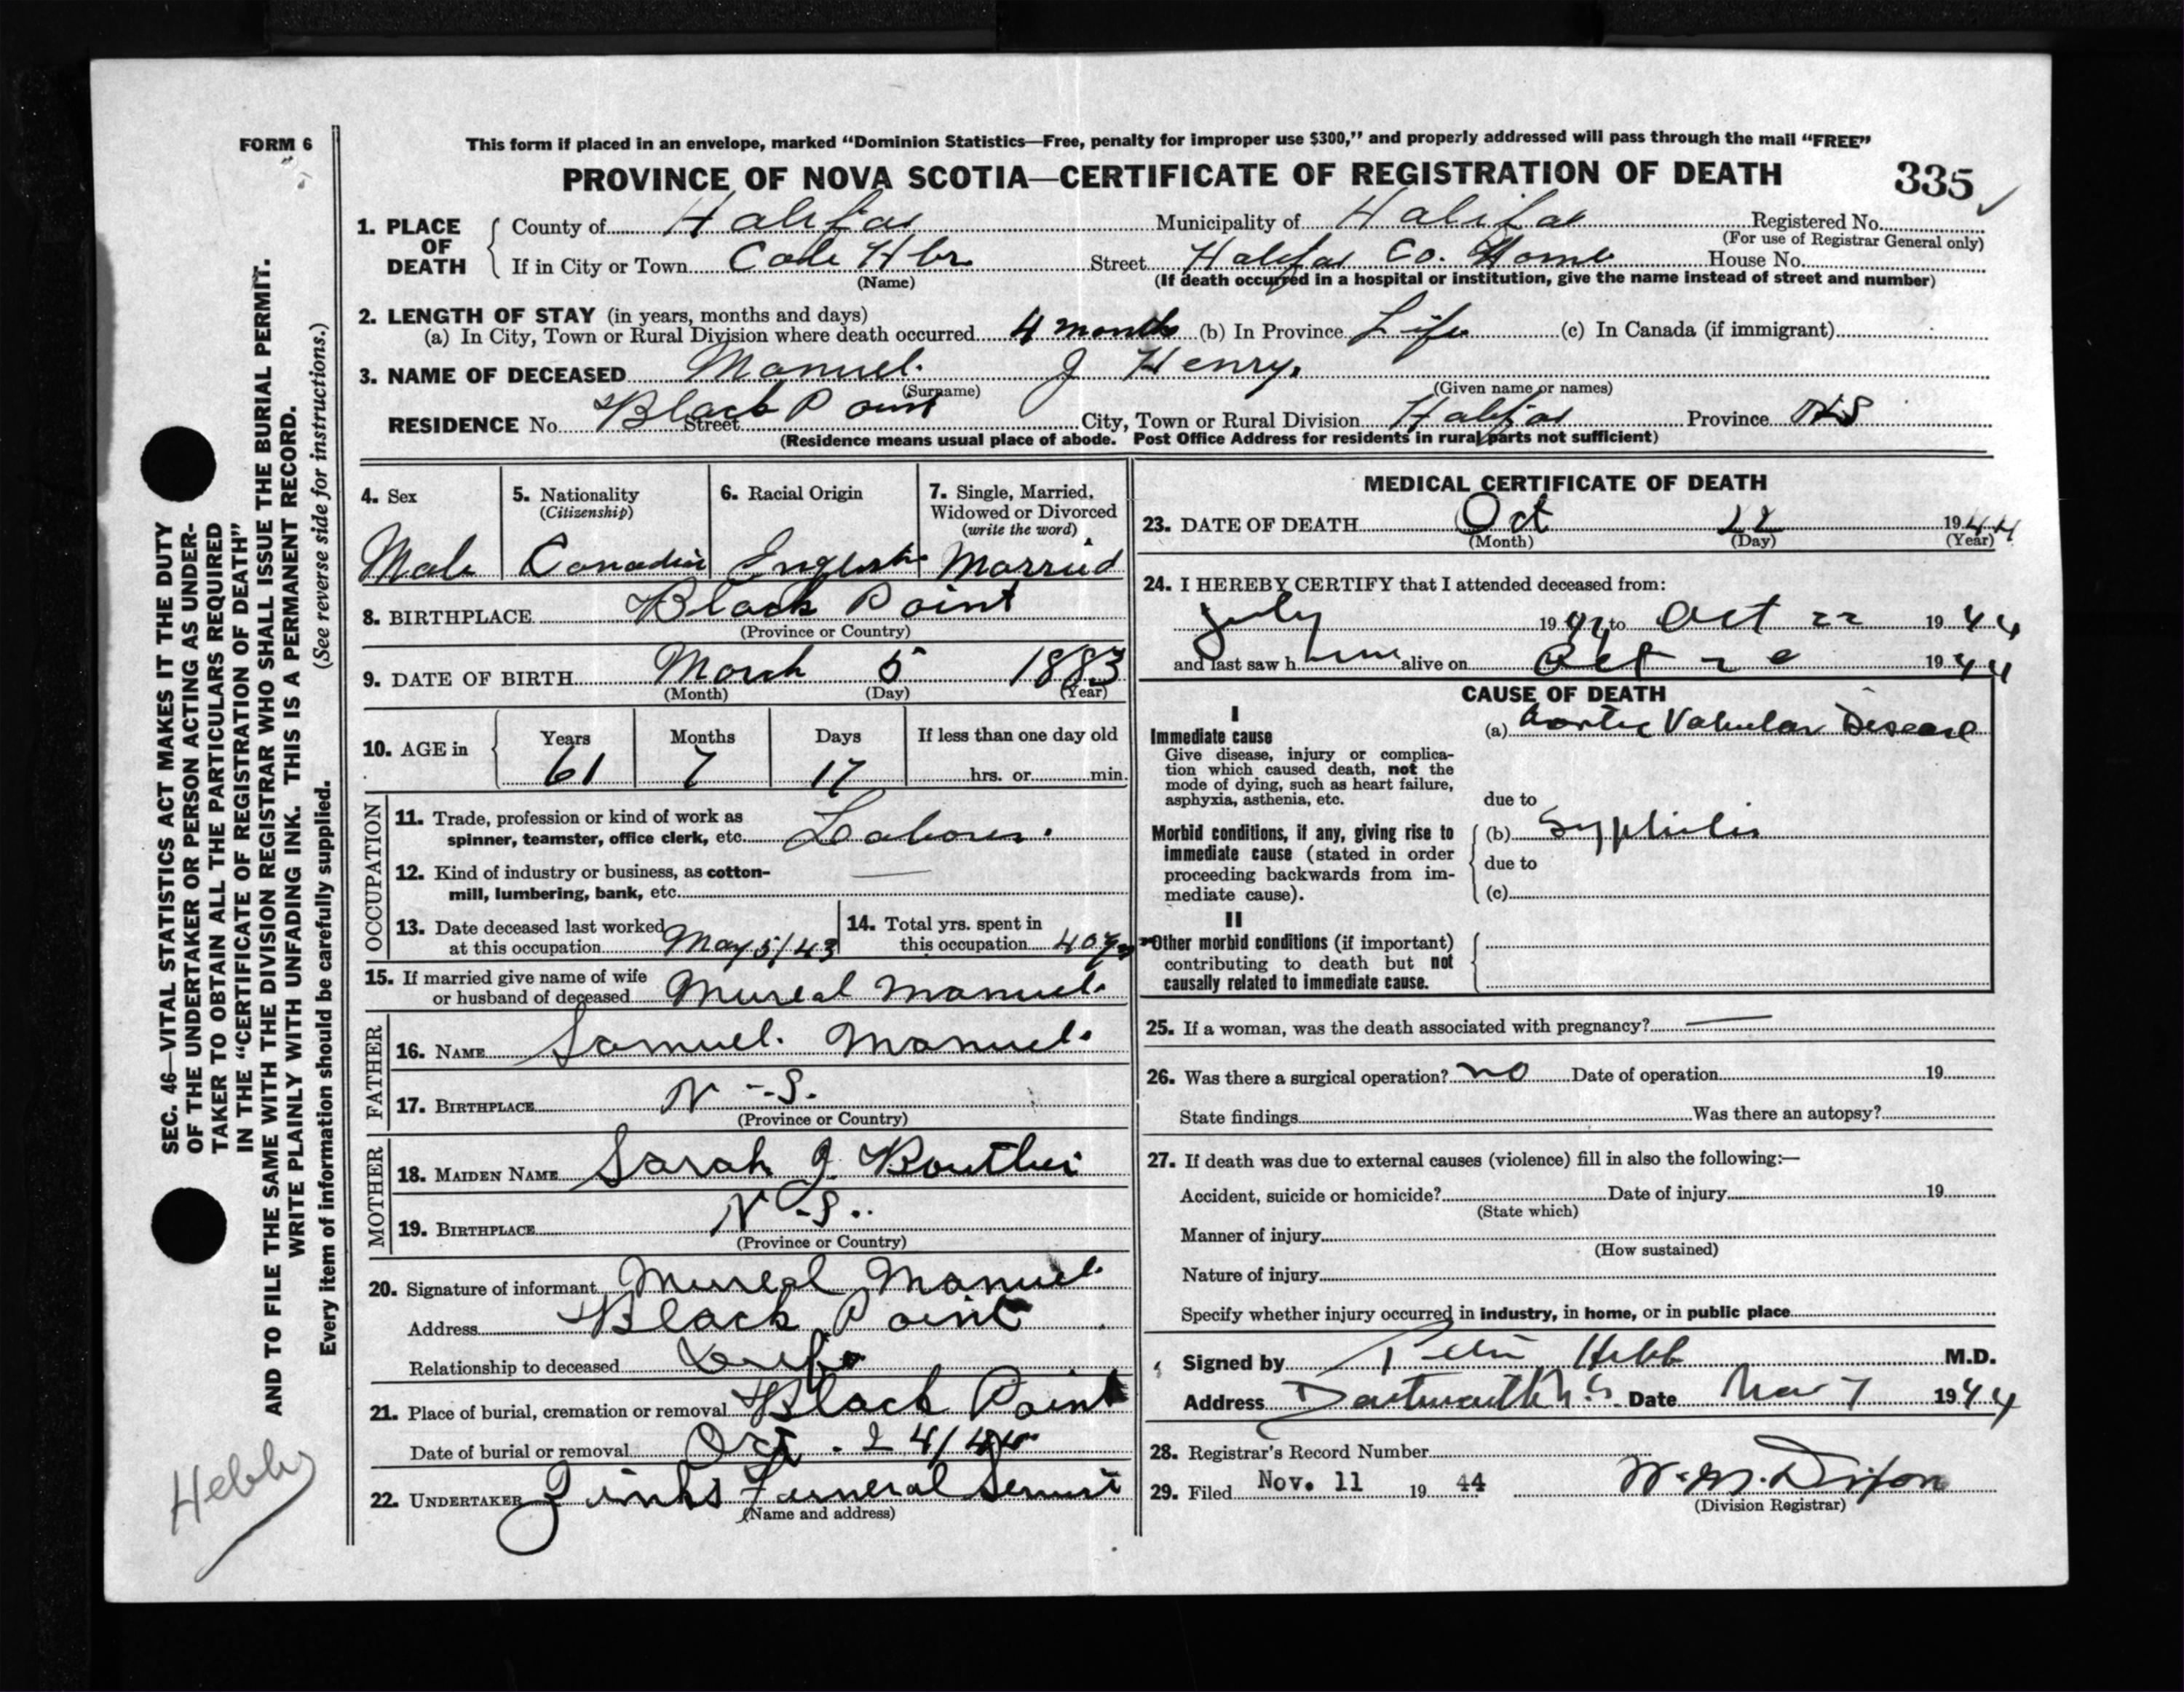 FORM 6
This form if placed in an envelope, marked “Dominion Statistics—Free, penalty for improper use $300,” and properly addressed will pass through the mail “FREE”
PROVINCE OF NOVA SCOTIA—CERTIFICATE OF REGISTRATION OF DEATH
335
1. PLACE OF DEATH
County of Halifax Municipality of Halifax Registered No.
(For use of Registrar General only)
If in City or Town Cole Hbr Street Halifax Co. Home House No.
(Name) (If death occurred in a hospital or institution, give the name instead of street and number)
2. LENGTH OF STAY (in years, months and days)
(a) In City, Town or Rural Division where death occurred 4 months (b) In Province Life (c) In Canada (if immigrant)
3. NAME OF DECEASED Manuel. J Henry.
(Surname) (Given name or names)
RESIDENCE No. Black Point Street City, Town or Rural Division Halifax Province NS
(Residence means usual place of abode. Post Office Address for residents in rural parts not sufficient)
4. Sex
Male
5. Nationality
(Citizenship)
Canadin
6. Racial Origin
English
7. Single, Married,
Widowed or Divorced
(write the word)
Married
8. BIRTHPLACE Black Point
(Province or Country)
9. DATE OF BIRTH March 5 1883
(Month) (Day) (Year)
10. AGE in
Years Months Days If less than one day old
61 7 17 hrs. or min.
OCCUPATION
11. Trade, profession or kind of work as
spinner, teamster, office clerk, etc. Laborer.
12. Kind of industry or business, as cotton-
mill, lumbering, bank, etc. —
13. Date deceased last worked
at this occupation May 5/43
14. Total yrs. spent in
this occupation 40 yrs
15. If married give name of wife
or husband of deceased Mureal Manuel.
FATHER
16. NAME Samuel. Manuel.
17. BIRTHPLACE N-S.
(Province or Country)
MOTHER
18. MAIDEN NAME Sarah J.
19. BIRTHPLACE N-S..
(Province or Country)
20. Signature of informant Mureal Manuel.
Address Black Point
Relationship to deceased Wife
21. Place of burial, cremation or removal Black Point
Date of burial or removal Oct. 24/44
22. UNDERTAKER Zinks Funeral
(Name and address)
MEDICAL CERTIFICATE OF DEATH
23. DATE OF DEATH Oct 22 1944
(Month) (Day) (Year)
24. I HEREBY CERTIFY that I attended deceased from:
July 1944 to Oct 22 1944
and last saw him alive on Oct 1944
CAUSE OF DEATH
I
Immediate cause
Give disease, injury or complica-
tion which caused death, not the
mode of dying, such as heart failure,
asphyxia, asthenia, etc.
(a) Aortic Valvular Disease
due to
Morbid conditions, if any, giving rise to
immediate cause (stated in order
proceeding backwards from im-
mediate cause).
(b) Syphilis
due to
(c)
II
Other morbid conditions (if important)
contributing to death but not
causally related to immediate cause.
25. If a woman, was the death associated with pregnancy? —
26. Was there a surgical operation? no Date of operation 19
State findings Was there an autopsy?
27. If death was due to external causes (violence) fill in also the following:—
Accident, suicide or homicide? Date of injury 19
(State which)
Manner of injury
(How sustained)
Nature of injury
Specify whether injury occurred in industry, in home, or in public place
Signed by Hebb M.D.
Address Dartmouth N.S. Date Nov 7 1944
28. Registrar's Record Number
29. Filed Nov. 11 19 44 W. M. Dixon
(Division Registrar)
SEC. 46—VITAL STATISTICS ACT MAKES IT THE DUTY
OF THE UNDERTAKER OR PERSON ACTING AS UNDER-
TAKER TO OBTAIN ALL THE PARTICULARS REQUIRED
IN THE “CERTIFICATE OF REGISTRATION OF DEATH”
AND TO FILE THE SAME WITH THE DIVISION REGISTRAR WHO SHALL ISSUE THE BURIAL PERMIT.
WRITE PLAINLY WITH UNFADING INK. THIS IS A PERMANENT RECORD.
Every item of information should be carefully supplied. (See reverse side for instructions.)